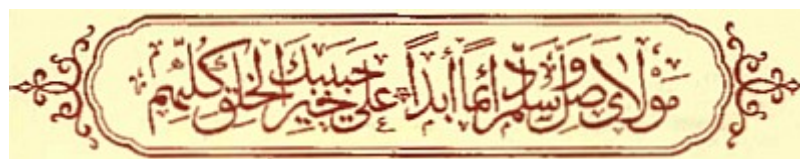 مَوْلَايَ صَلِّ وَسَلِّمْ دَائِمًا أَبَدًا عَلَى حَبِيبِكَ خَيْرِ الْخَلْقِ كُلِّهِمِ